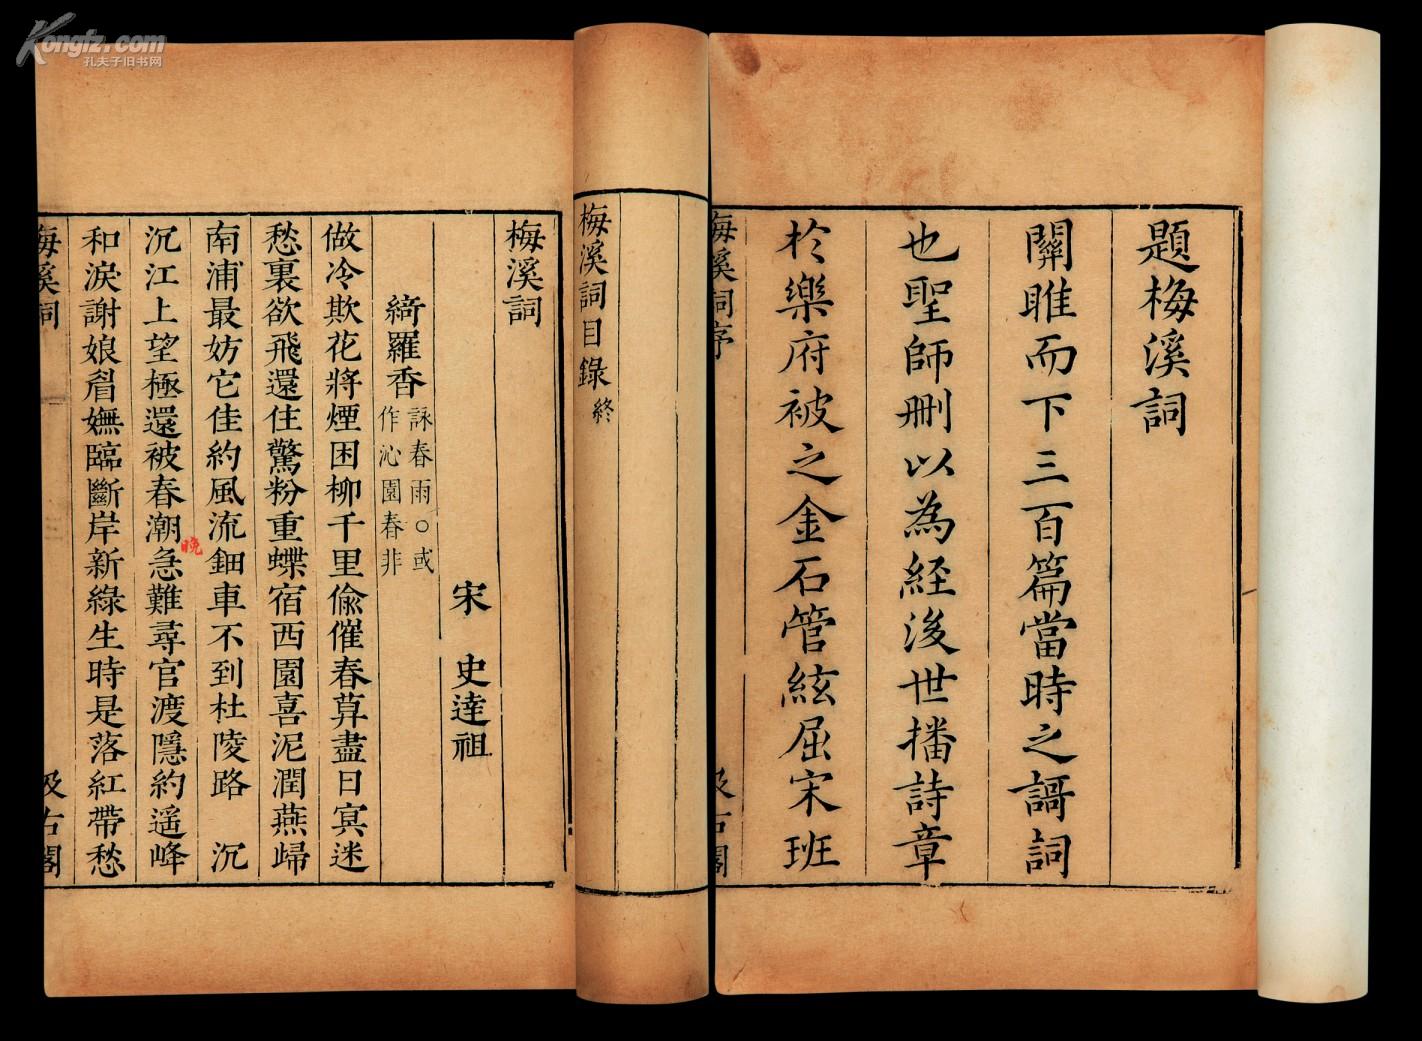 Kongfz.com
孔夫子旧书网
題梅溪詞
關雎而下三百篇當時之謌詞
也聖師刪以為經後世播詩章
於樂府被之金石管絃屈宋班
梅溪詞序
汲古閣
梅溪詞目錄終
梅溪詞
宋 史達祖
綺羅香
詠春雨○或
作沁園春非
做冷欺花將煙困柳千里偸催春暮盡日冥迷
愁裏欲飛還住驚粉重蝶宿西園喜泥潤燕歸
南浦最妨它佳約風流鈿車不到杜陵路 沉
晚
沉江上望極還被春潮急難尋官渡隱約遥峰
和淚謝娘眉嫵臨斷岸新綠生時是落紅帶愁
梅溪詞
汲古閣